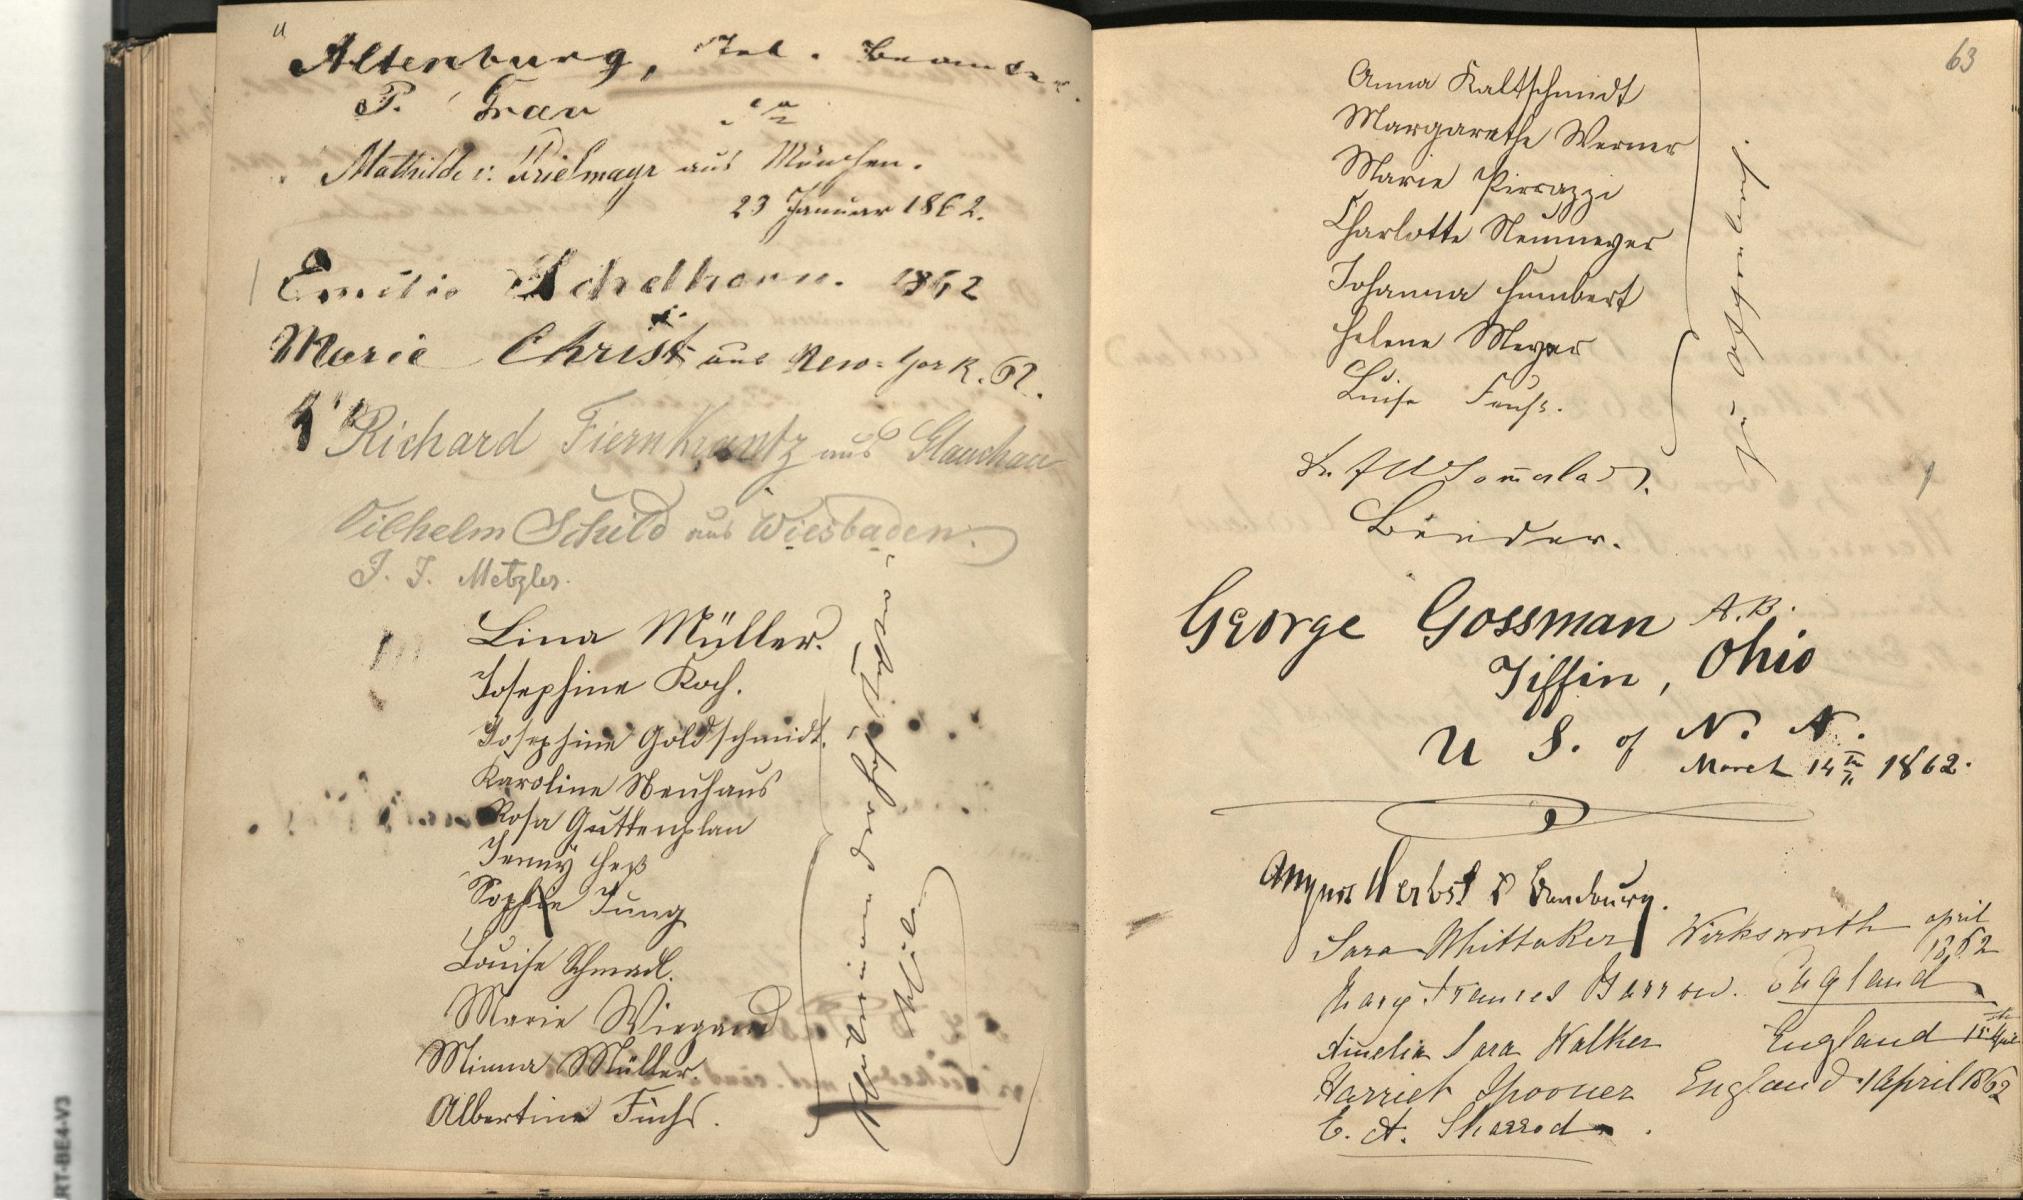 Altenburg, Tel. Beamter.
P. Frau
Mathilde v. Prielmayr aus München.
23 Januar 1862.
Emilie Schelhorn. 1862
Marie Christ aus New-York. 62.
Richard Fiernkrantz aus Glauchau
Wilhelm Schild aus Wiesbaden.
J. J. Metzler.
Lina Müller.
Josephine Koch.
Josephine Goldschmidt.
Karoline Neuhaus
Rosa Guttenplan
Jenny Heß
Sophie Jung
Louise Schmadl.
Marie Wiegand
Minna Müller.
Albertine Fuchs.
Schülerinnen der
Schule
63
Anna Kaltschmidt
Margarethe Werner
Marie Pirazzi
Charlotte Neumeyer
Johanna Humbert
Helene Meyer
Luise Feuß.
v. Offenbach.
Bender.
George Gossman A.B.
Tiffin, Ohio
U S. of N. A.
March 14th 1862.
Herbst
Sara Whittaker Wirksworth april 1862
Mary Frances Barrow. England
Amelia Sara Walker England 15th April
Harriet Spooner England 1 April 1862
E. A. Sharrod.